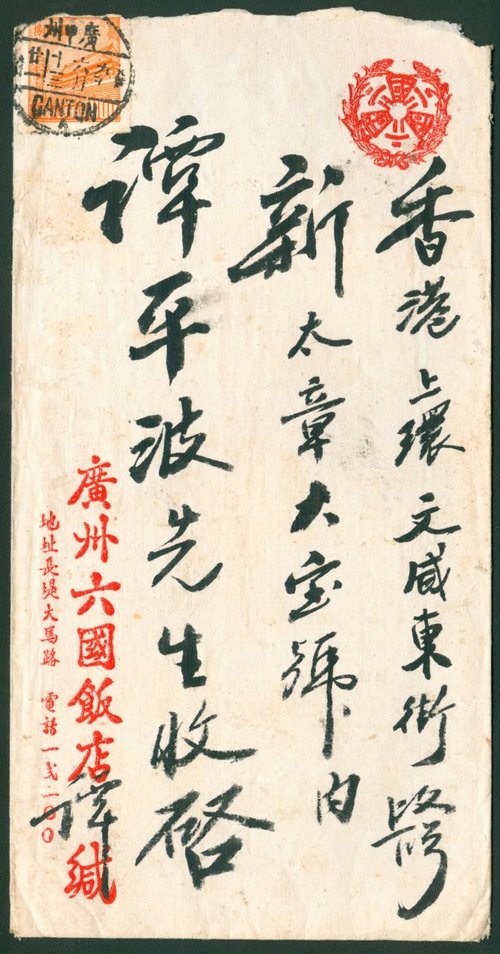 香港上環文咸東街
新太章大宝號内
譚平波先生收啓
廣州六國飯店 譚 緘
地址長堤大馬路 電話
廣州
甲
CANTON